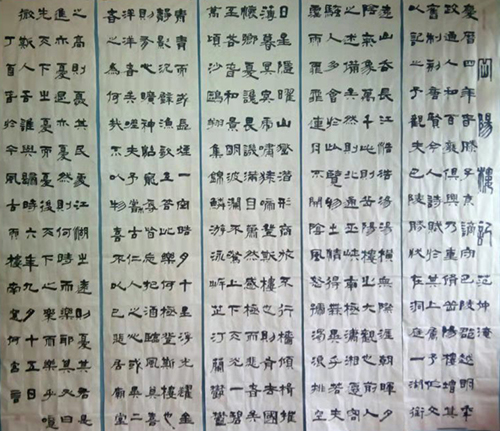 岳陽樓記 范仲淹
慶曆四年春滕子京謫守巴陵郡越明年
政通人和百廢俱興乃重修岳陽樓增其
舊制刻唐賢今人詩賦於其上屬予作文
以記之予觀夫巴陵勝狀在洞庭一湖銜
遠山吞長江浩浩湯湯橫無際涯朝暉夕
陰氣象萬千此則岳陽樓之大觀也前人
之述備矣然則北通巫峽南極瀟湘遷客
騷人多會於此覽物之情得無異乎若夫
霪雨霏霏連月不開陰風怒號濁浪排空
日星隱曜山岳潛形商旅不行檣傾楫摧
薄暮冥冥虎嘯猿啼登斯樓也則有去國
懷鄉憂讒畏譏滿目蕭然感極而悲者矣
至若春和景明波瀾不驚上下天光一碧
萬頃沙鷗翔集錦鱗游泳岸芷汀蘭郁郁
青青而或長煙一空皓月千里浮光躍金
靜影沉璧漁歌互答此樂何極登斯樓也
則有心曠神怡寵辱皆忘把酒臨風其喜
洋洋者矣嗟夫予嘗求古仁人之心或異二
者之為何哉不以物喜不以己悲居廟堂
之高則憂其民處江湖之遠則憂其君是
進亦憂退亦憂然則何時而樂耶其必曰
先天下之憂而憂後天下之樂而樂乎噫
微斯人吾誰與歸時六年九月十五日